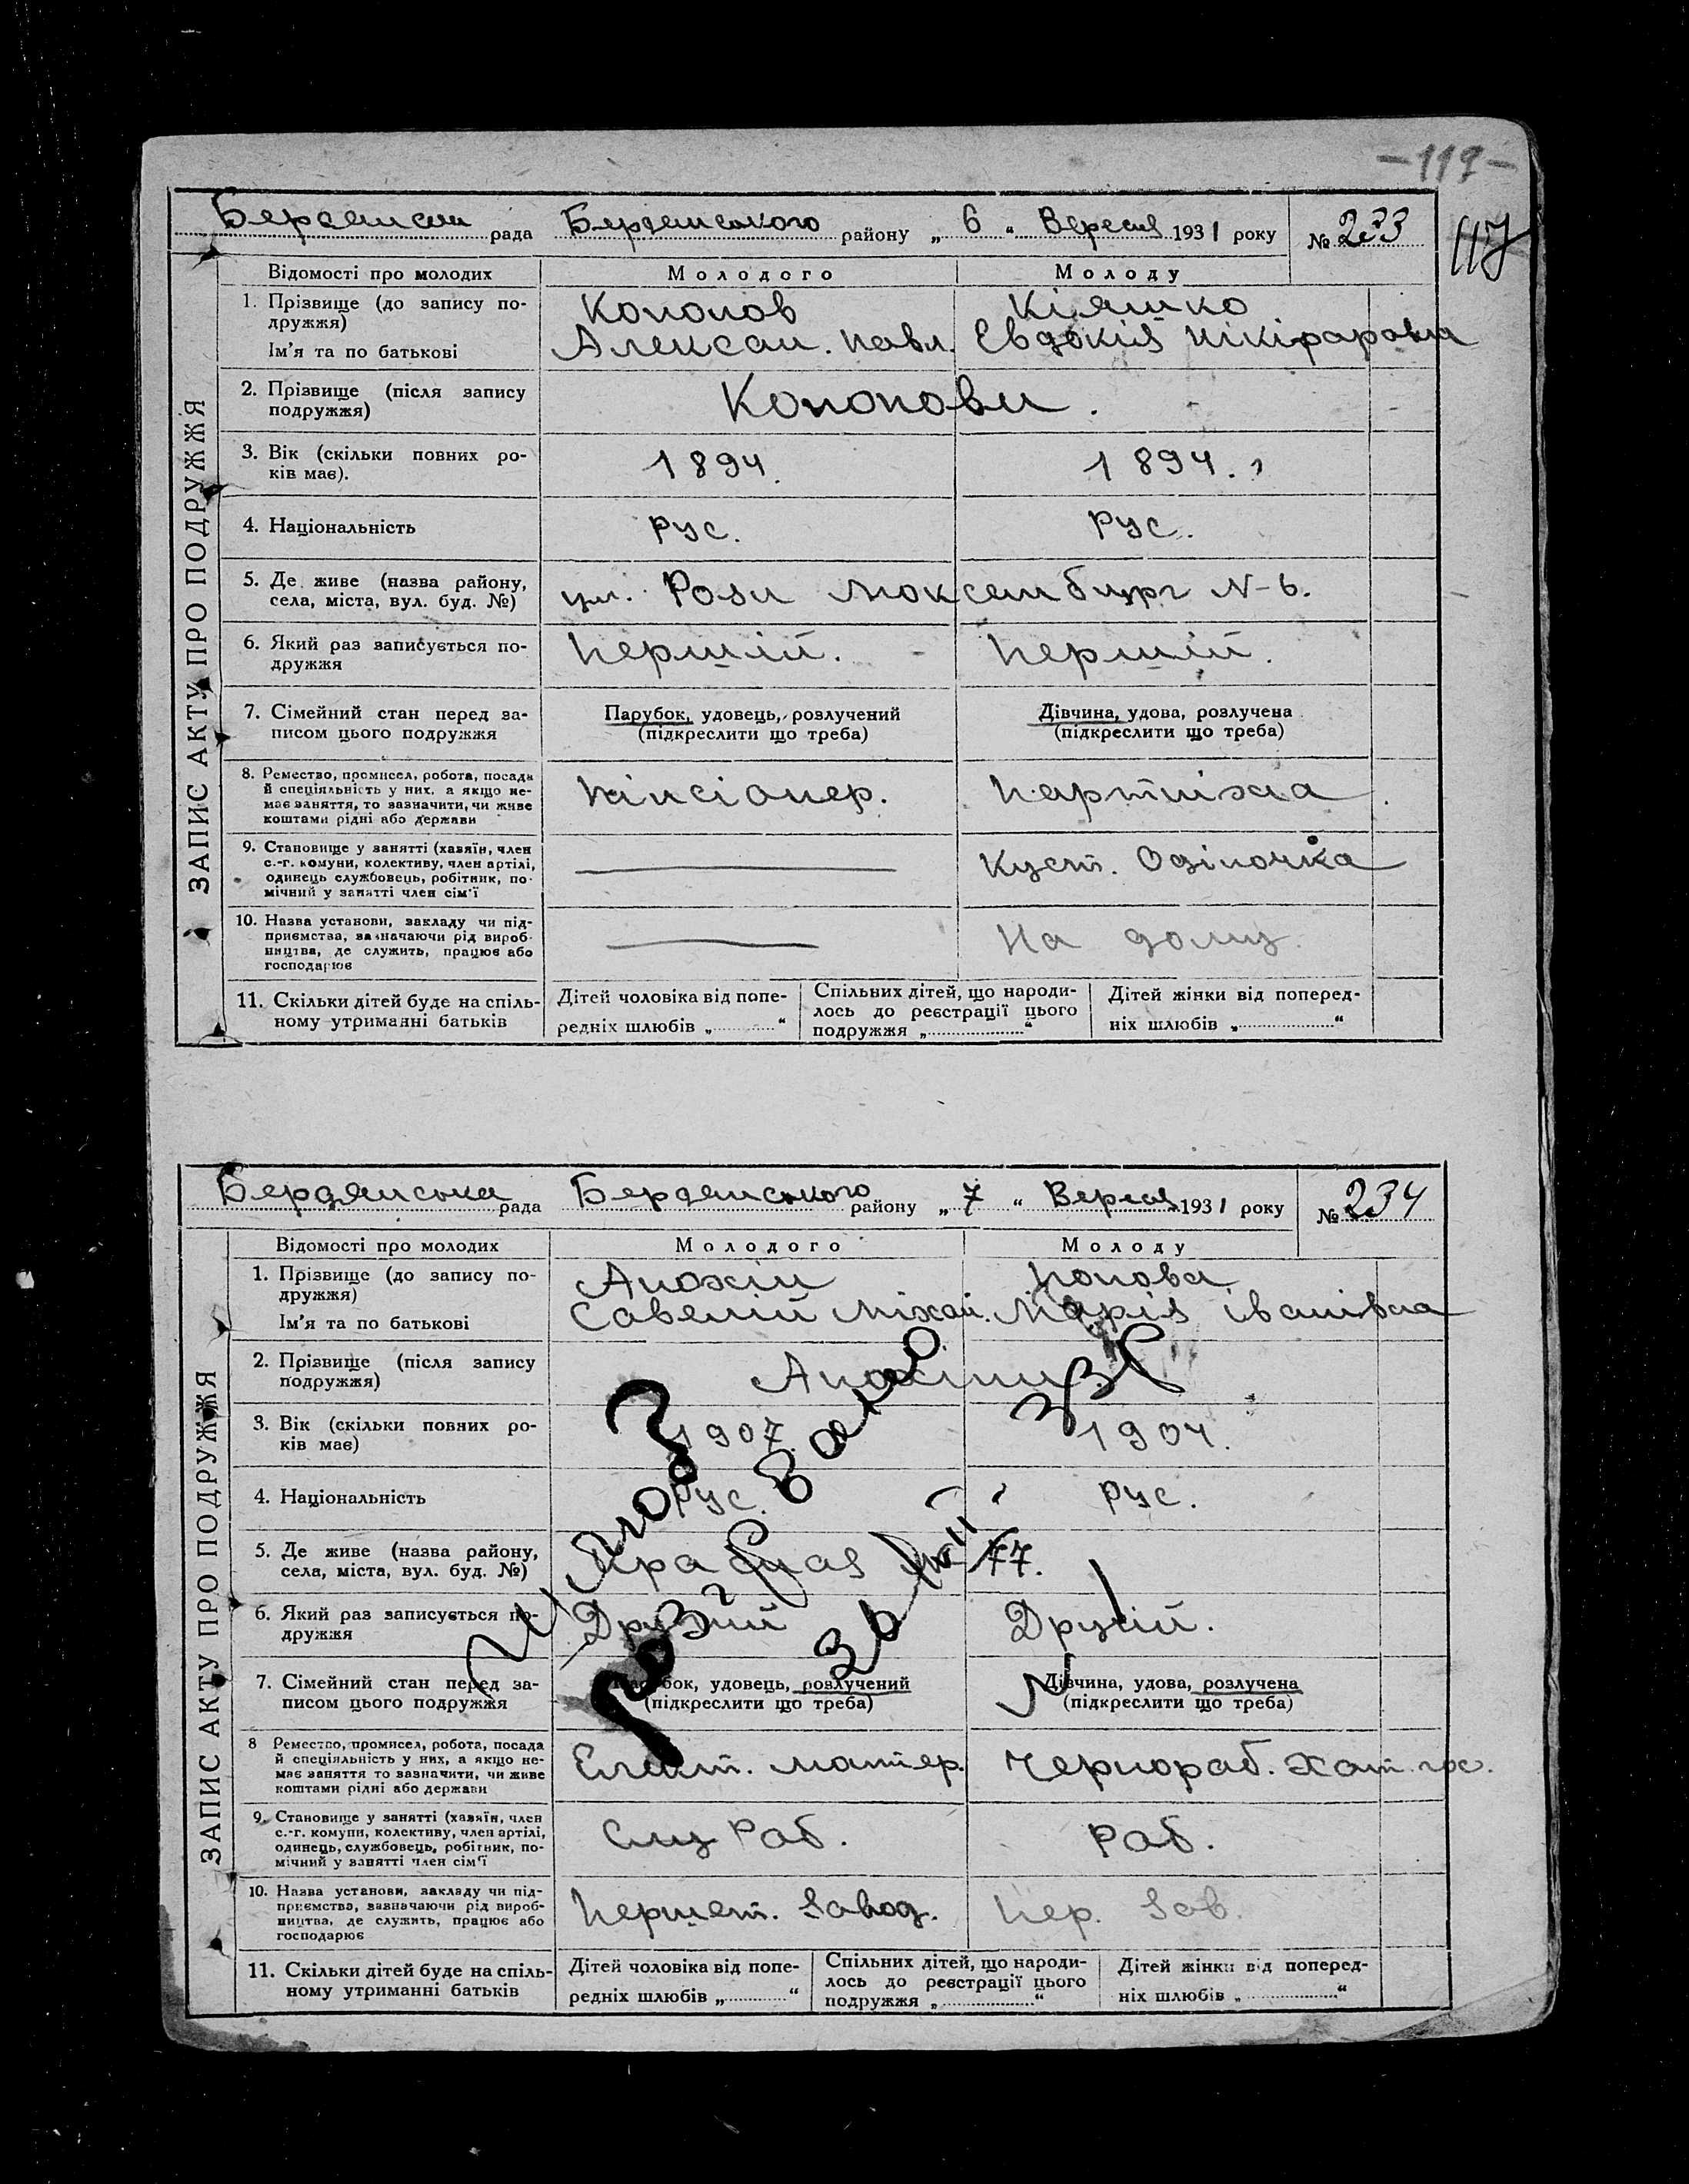 -117-
117
Бердянська рада Бердянського району „ 6 " Вересня 1931 року № 233
ЗАПИС АКТУ ПРО ПОДРУЖЖЯ
Відомості про молодих Молодого Молоду
1. Прізвище (до запису по-
дружжя)
Кононов Кіяшко
Ім'я та по батькові Алексан. Павл. Евдокія Нікіфаровна
2. Прізвище (після запису
подружжя)
Кононови.
3. Вік (скільки повних ро-
ків має).
1894. 1894.
4. Національність рус. рус.
5. Де живе (назва району,
села, міста, вул. буд. №)
ул. Рози Люксембург N-6.
6. Який раз записується по-
дружжя
Першій. Першій.
7. Сімейний стан перед за-
писом цього подружжя
Парубок, удовець, розлучений Дівчина, удова, розлучена
(підкреслити що треба) (підкреслити що треба)
8. Ремество, промисел, робота, посада
й спеціяльність у них, а якщо не-
має заняття, то зазначити, чи живе
коштами рідні або держави
Пінсіонер. Партніха.
9. Становище у занятті (хазяїн, член
с.-г. комуни, колективу, член артілі,
одинець службовець, робітник, по-
мічний у занятті член сім'ї
Куст. Одіночка
10. Назва установи, закладу чи під-
приємства, зазначаючи рід вироб-
ництва, де служить, працює або
господарює
На дому.
11. Скільки дітей буде на спіль-
ному утриманні батьків
Дітей чоловіка від попе-
редніх шлюбів „ "
Спільних дітей, що народи-
лось до реєстрації цього
подружжя „ "
Дітей жінки від поперед-
ніх шлюбів „ "
Бердянська рада Бердянського району „ 7 " Вересня 1931 року № 234
ЗАПИС АКТУ ПРО ПОДРУЖЖЯ
Відомості про молодих Молодого Молоду
1. Прізвище (до запису по-
дружжя)
Анохін Попова
Ім'я та по батькові Савелій Міхай. Марія Іванівна
2. Прізвище (після запису
подружжя)
Анохіни
3. Вік (скільки повних ро-
ків має)
1907. 1904.
4. Національність рус. рус.
5. Де живе (назва району,
села, міста, вул. буд. №)
77.
6. Який раз записується по-
дружжя
Другий Другій.
7. Сімейний стан перед за-
писом цього подружжя
Парубок, удовець, розлучений Дівчина, удова, розлучена
(підкреслити що треба) (підкреслити що треба)
8 Ремество, промисел, робота, посада
й спеціяльність у них, а якщо не-
має заняття то зазначити, чи живе
коштами рідні або держави
Чернораб.
9. Становище у занятті (хазяїн, член
с.-г. комуни, колективу, член артілі,
одинець, службовець, робітник, по-
мічний у занятті член сім'ї
Раб. Раб.
10. Назва установи, закладу чи під-
приємства, зазначаючи рід вироб-
ництва, де служить, працює або
господарює
Першет. Завод. Пер. Зав.
11. Скільки дітей буде на спіль-
ному утриманні батьків
Дітей чоловіка від попе-
редніх шлюбів „ "
Спільних дітей, що народи-
лось до реєстрації цього
подружжя „ "
Дітей жінки від поперед-
ніх шлюбів „ "